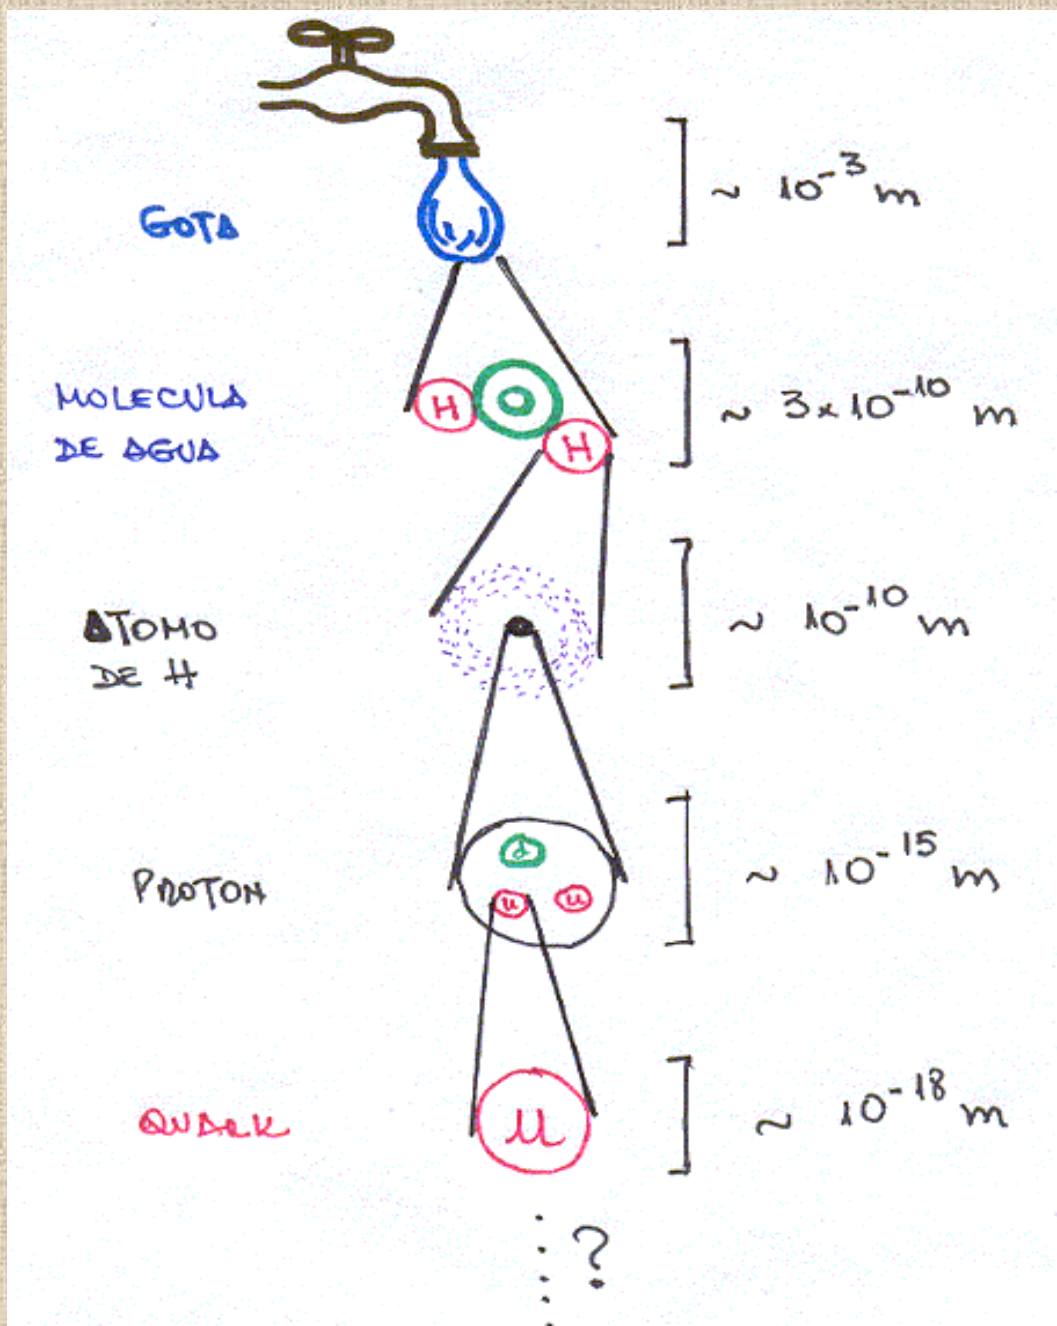 GOTA
~ 10⁻³ m
MOLECULA
DE AGUA
H O H
~ 3x10⁻¹⁰ m
ATOMO
DE H
~ 10⁻¹⁰ m
PROTON
d
u u
~ 10⁻¹⁵ m
QUARK
u
~ 10⁻¹⁸ m
?